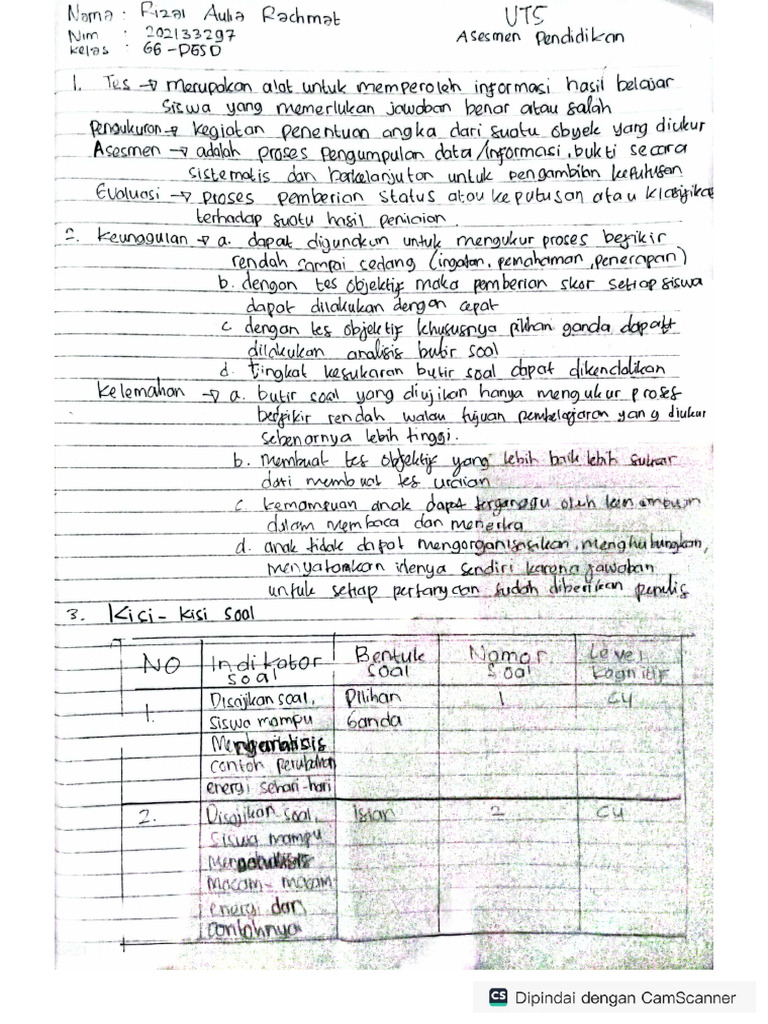 Nama : Rizal Aulia Rachmat
UTS
Nim : 202133297
Asesmen Pendidikan
Kelas : 6G-PGSD
1. Tes → merupakan alat untuk memperoleh informasi hasil belajar
siswa yang memerlukan jawaban benar atau salah
Pengukuran → kegiatan penentuan angka dari suatu obyek yang diukur
Asesmen → adalah proses pengumpulan data/informasi, bukti secara
sistematis dan berkelanjutan untuk pengambilan keputusan
Evaluasi → proses pemberian status atau keputusan atau klasifika
terhadap suatu hasil penilaian.
2. Keunggulan → a. dapat digunakan untuk mengukur proses berfikir
rendah sampai sedang (ingatan, pemahaman, penerapan)
b. dengan tes objektif maka pemberian skor setiap siswa
dapat dilakukan dengan cepat
c. dengan tes objektif khususnya pilihan ganda dapat
dilakukan analisis butir soal
d. tingkat kesukaran butir soal dapat dikendalikan
Kelemahan → a. butir soal yang diujikan hanya mengukur proses
berfikir rendah walau tujuan pembelajaran yang diukur
sebenarnya lebih tinggi.
b. membuat tes objektif yang lebih baik lebih sukar
dari membuat tes uraian
c. kemampuan anak dapat terganggu oleh
dalam membaca dan menerka
d. anak tidak dapat mengorganisasikan, menghubungkan,
menyatakan idenya sendiri karena jawaban
untuk setiap pertanyaan sudah diberikan penulis
3. Kisi-kisi soal
NO
Indikator soal
Bentuk soal
Nomor soal
Level kognitif
1.
Disajikan soal,
Pilihan
1
C4
siswa mampu
Ganda
Menganalisis
contoh perubahan
energi sehari-hari
2.
Disajikan soal,
Isian
2
C4
siswa mampu
Menganalisis
macam-macam
energi dan
contohnya
CS Dipindai dengan CamScanner